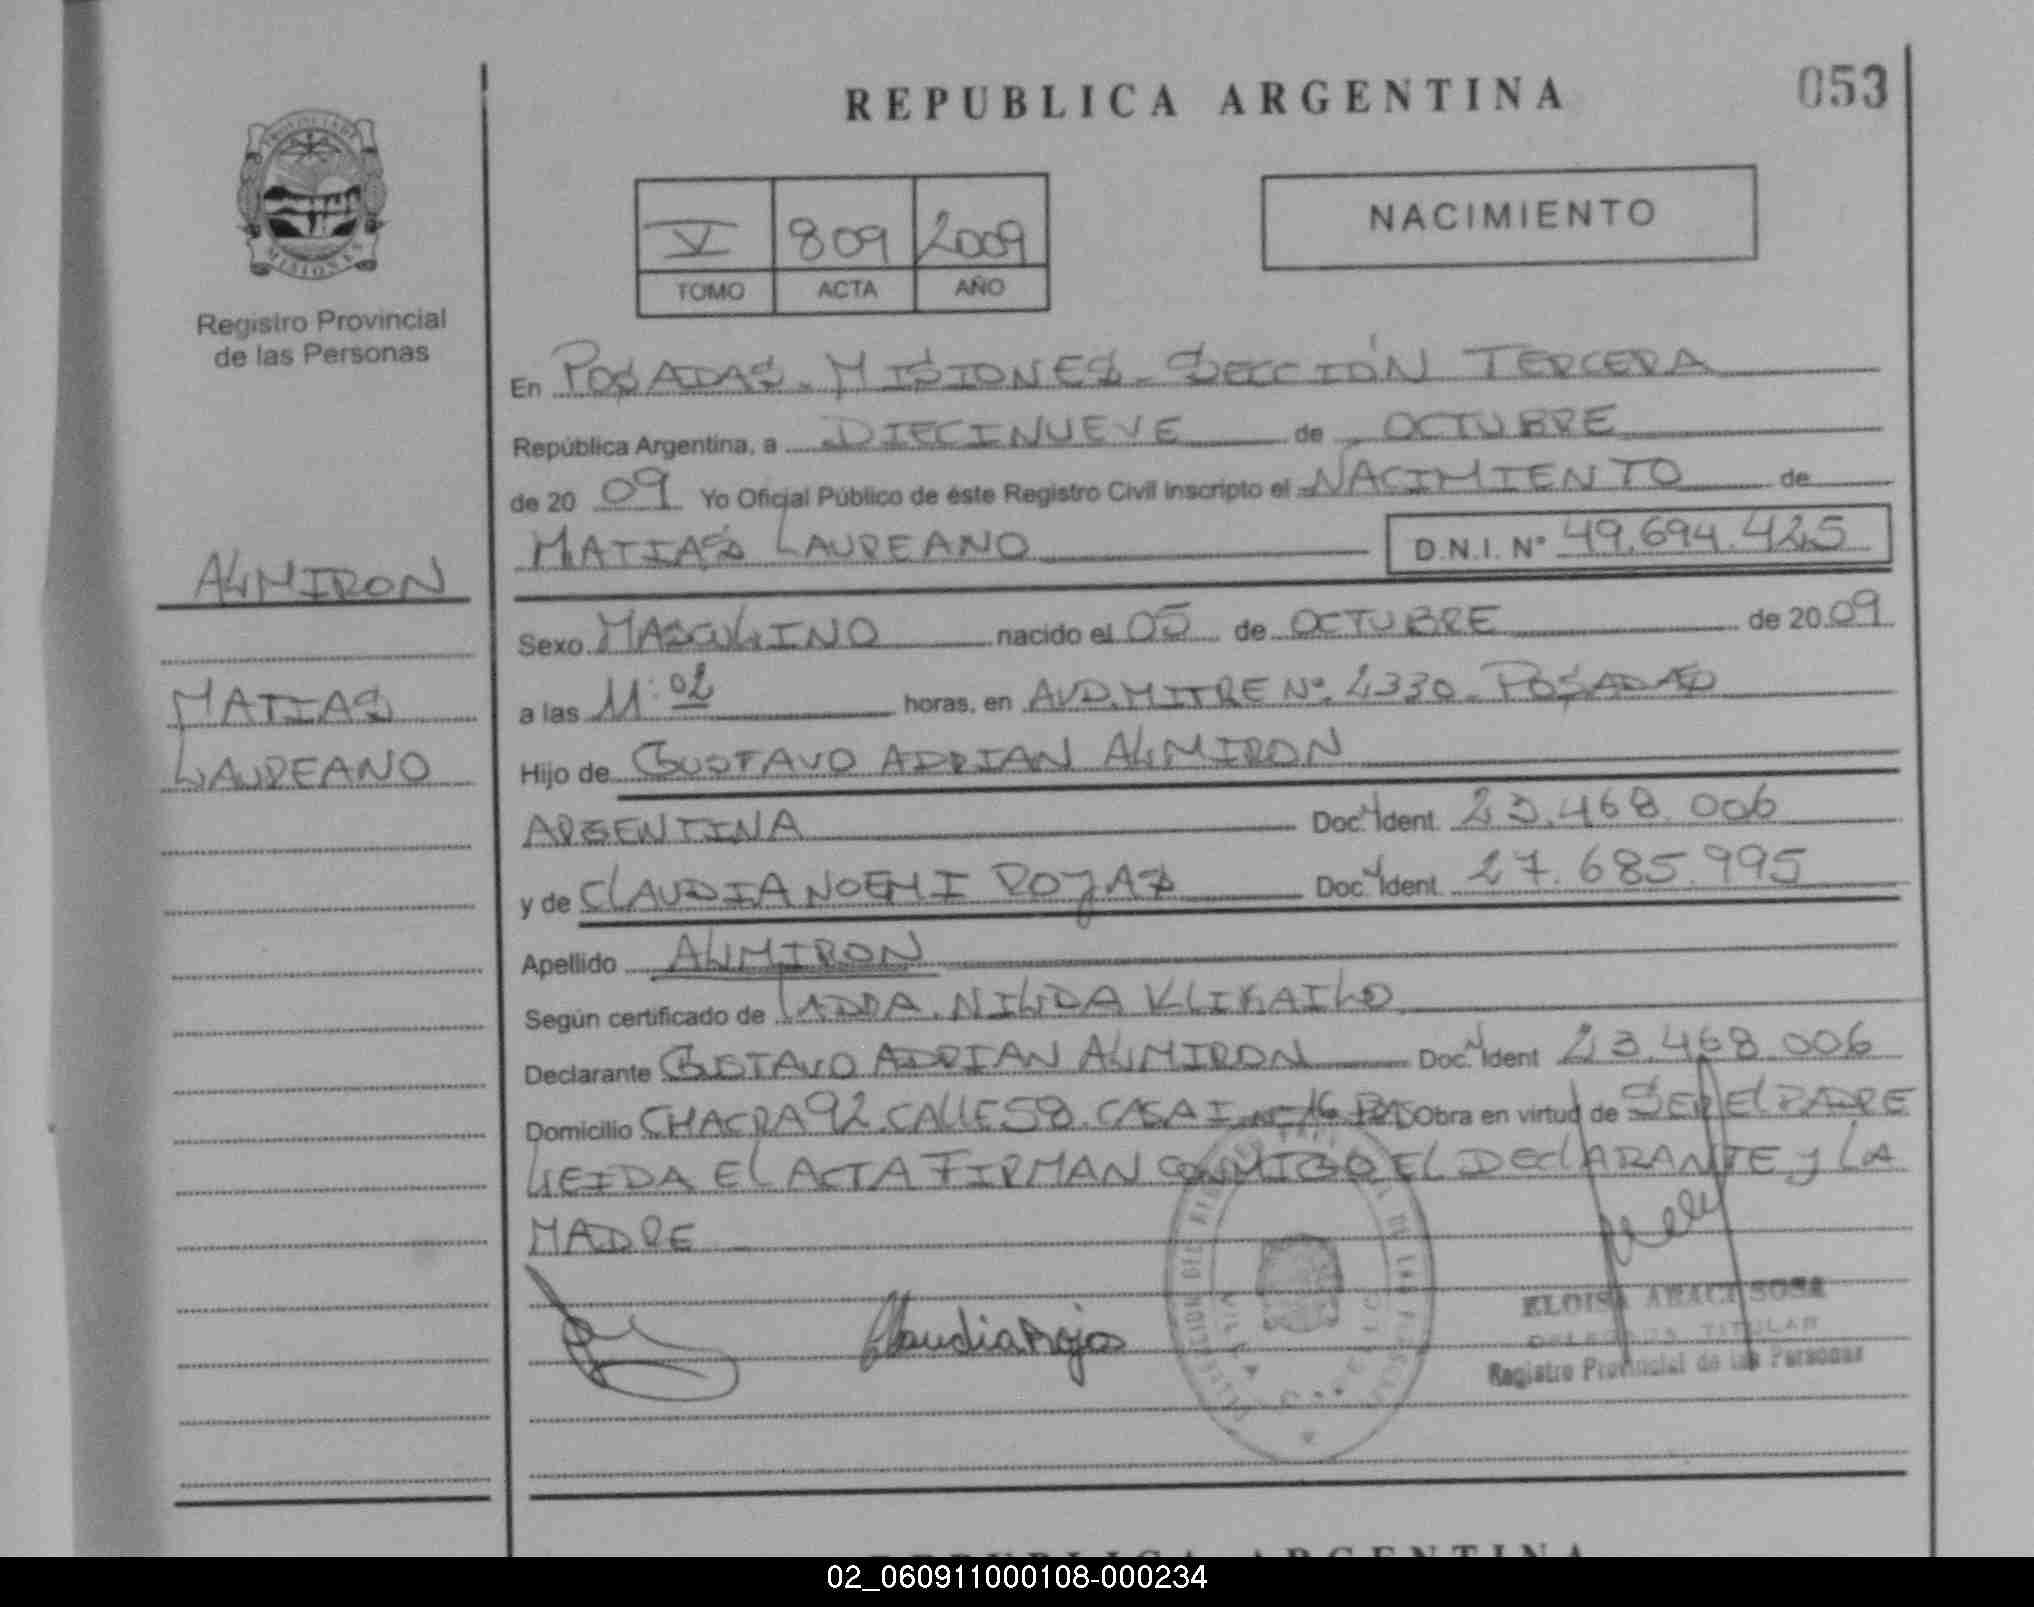 REPUBLICA ARGENTINA
053
PROVINCIA DE
MISIONES
Registro Provincial
de las Personas
V 809 2009
TOMO ACTA AÑO
NACIMIENTO
En POSADAS - MISIONES - SECCIÓN TERCERA
República Argentina, a DIECINUEVE de OCTUBRE
de 20 09 Yo Oficial Público de éste Registro Civil inscripto el NACIMIENTO de
MATIAS LAUREANO D.N.I. Nº 49.694.425
ALMIRON
MATIAS
LAUREANO
Sexo MASCULINO nacido el 05 de OCTUBRE de 20 09
a las 11:02 horas, en AVD. MITRE Nº 2330 - POSADAS
Hijo de GUSTAVO ADRIAN ALMIRON
ARGENTINA Doc. N Ident. 23.468.006
y de CLAUDIA NOEMI ROJAS Doc. N Ident. 27.685.995
Apellido ALMIRON
Según certificado de NILDA KLIKAILO
Declarante GUSTAVO ADRIAN ALMIRON Doc. N Ident 23.468.006
Domicilio CHACRA 92 CALLE 58 CASA 16 Obra en virtud de SER EL PADRE
LEIDA EL ACTA FIRMAN CONMIGO EL DECLARANTE y LA
MADRE
Claudia Rojas
ELOISA SOSA
TITULAR
Registro Provincial de las Personas
REPUBLICA ARGENTINA
02_060911000108-000234